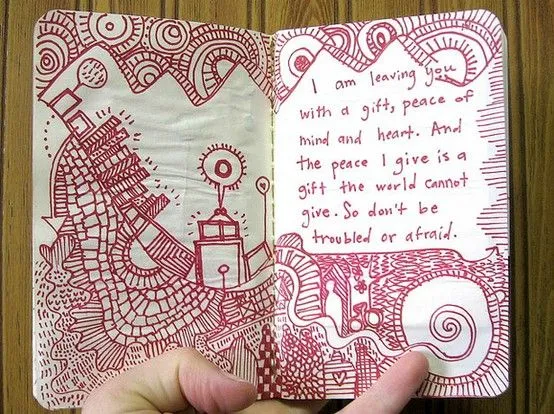 I am leaving you
with a gift, peace of
mind and heart. And
the peace I give is a
gift the world cannot
give. So don't be
troubled or afraid.